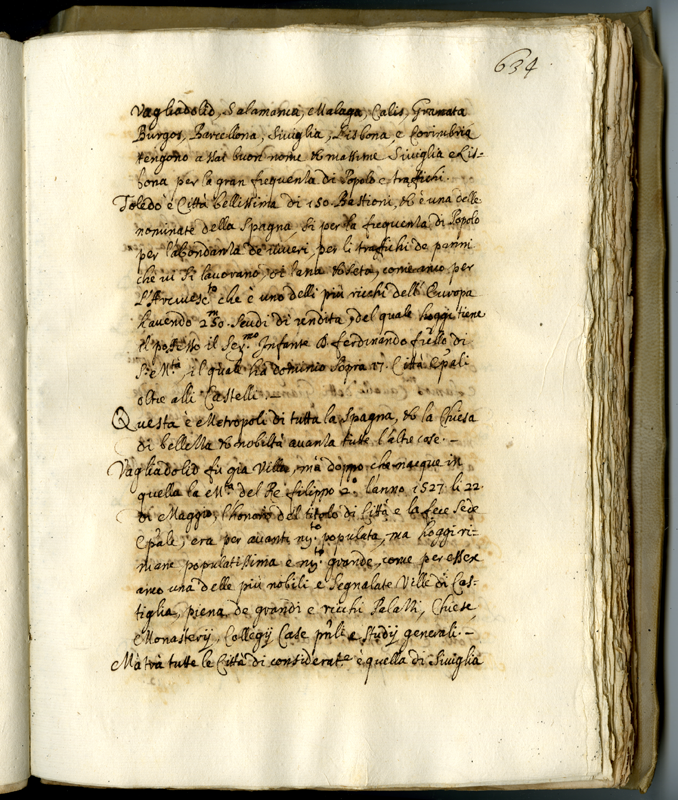 634
Vagliadolid, Salamanca, Malaga, Calis, Granata
Burgos, Barcellona, Siviglia, Lisbona, e Corimbria
tengono assai buon nome, et massime Siviglia e Lis-
bona per la gran frequenza di Popolo e traffichi.
Toledo è Città bellissima di 150 Bastioni, et è una delle
nominate della Spagna, si per la frequenza di Popolo
per l'abondanza de viveri, per li traffichi de panni
che ivi si lavorano, di lana et seta, come anco per
l'Arcivesc.to che è uno delli più ricchi dell'Europa
havendo 250 Scudi di rendita, del quale hoggi tiene
il possesso il Ser.mo Infante D. ferdinando fr̃ello di
S. M.tà, il quale ha dominio sopra 17 Città Ep̃ali
oltre alli Castelli.
Questa è Metropoli di tutta la Spagna, et la Chiesa
di bellezza et nobiltà avanza tutte l'altre case. -
Vagliadolid fù già Villa, mà doppo che nacque in
quella la M.tà del Re filippo 2.o l'anno 1527 li 22
di Maggio, l'honorò del titolo di Città e la fece Sede
Ep̃ale, era per avanti populata, ma hoggi ri-
mane populatissima e grande, come per esser
anco una delle più nobili e segnalate Ville di Cas-
tiglia, piena de grandi e ricchi Palazzi, Chiese,
Monasterij, Collegij Case pñli e Studij generali. -
Ma trà tutte le Città di considerat.e è quella di Siviglia